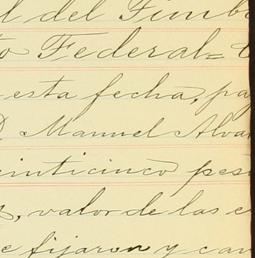 l del Timb
o Federal= C
esta fecha, pa
D. Manuel Alva
einticinco pes
, valor de las e
e fijaron y can